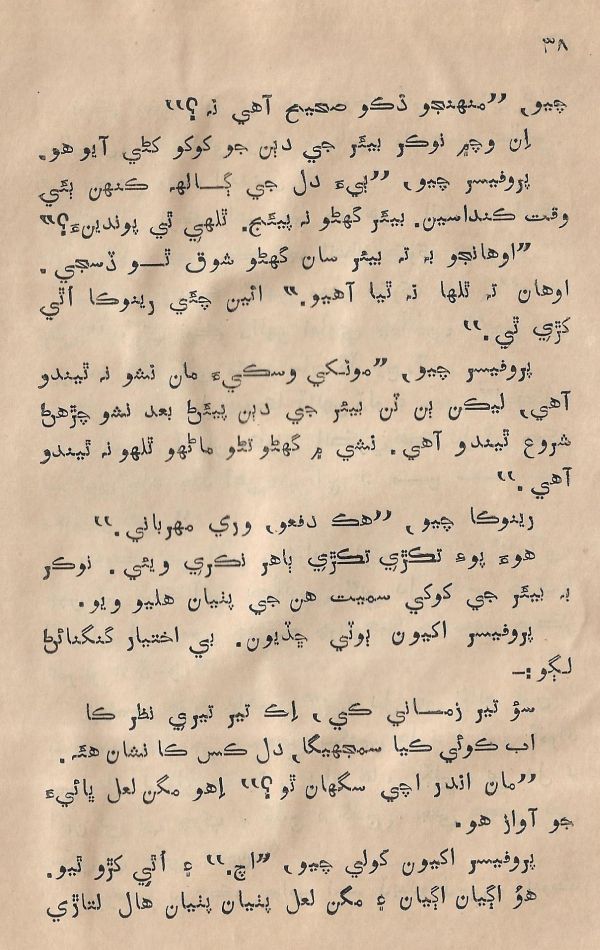 ٣٨
چيو, ”منهنجو ڌڪو صحيح آهي نہ؟“
اِن وچ۾ نوڪر بيئر جي دٻن جو کوکو کڻي آيو هو.
پروفيسر چيو, ”ٻيءَ دل جي ڳالهہ ڪنهن ٻئي
وقت ڪنداسين. بيئر گهڻو نہ پيئج. ٿلهي ٿي پوندينءَ؟“
”اوهانجو بہ تہ بيئر سان گهڻو شوق ٿو ڏسجي.
اوهان تہ ٿلها نہ ٿيا آهيو.“ ائين چئي رينوڪا اُٿي
کڙي ٿي.“
پروفيسر چيو, ”مونکي وسڪيءَ مان نشو نہ ٿيندو
آهي, ليڪن ٻن ٽن بيئر جي دٻن پيئڻ بعد نشو چڙهڻ
شروع ٿيندو آهي. نشي ۾ گهڻو تڻو ماڻهو ٿلهو نہ ٿيندو
آهي.“
رينوڪا چيو, ”هڪ دفعو, وري مهرباني.“
هوءَ پوءِ تڪڙي تڪڙي ٻاهر نڪري ويئي. نوڪر
بہ بيئر جي کوکي سميت هن جي پٺيان هليو ويو.
پروفيسر اکيون ٻوٽي ڇڏيون. بي اختيار گنگنائڻ
لڳو:—
سؤ تير زماني کي, اِڪ تير تيري نظر کا
اب کوئي کيا سمجهيگا, دل کس کا نشان هئہ.
”مان اندر اچي سگهان ٿو؟“ اِهو مگن لعل ڀائيءَ
جو آواز هو.
پروفيسر اکيون کولي چيو, ”اچ.“ ۽ اُٿي کڙو ٿيو.
هوُ اڳيان اڳيان ۽ مگن لعل پٺيان پٺيان هال لتاڙي